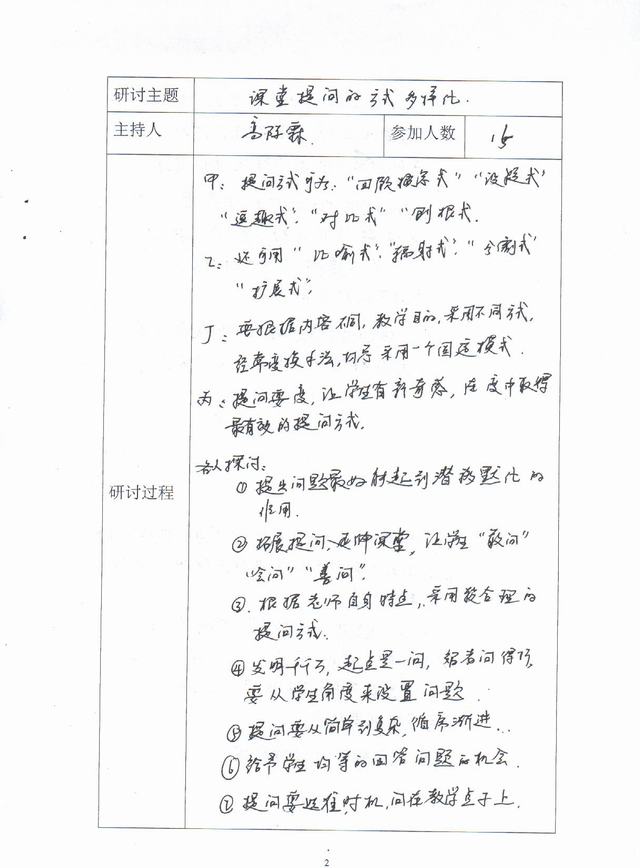 研讨主题 课堂提问的方式多样化.
主持人 高 霖 参加人数 15
研讨过程
甲: 提问方式可为: “回顾 式” “设疑式”
“逗趣式”. “对比式” “刨根式.
乙: 还可用“比喻式”. “辐射式”. “分割式”
“扩展式”;
丁: 要根据内容不同, 教学目的, 采用不同方式,
经常变换手法, 切忌采用一个固定模式.
丙: 提问要变, 让学生有新奇感, 在变中取得
最有效的提问方式.
各人探讨:
① 提出问题最好能起到潜移默化的
作用.
② 拓展提问、延伸课堂, 让学生“敢问”
“会问” “善问”.
③. 根据老师自身特点, 采用较合理的
提问方式.
④ 发明千千万, 起点是一问, 智者问得巧,
要从学生角度来设置问题.
⑤ 提问要从简单到复杂, 循序渐进...
⑥ 给予学生均等的回答问题的机会.
⑦ 提问要选准时机, 问在教学点子上.
2